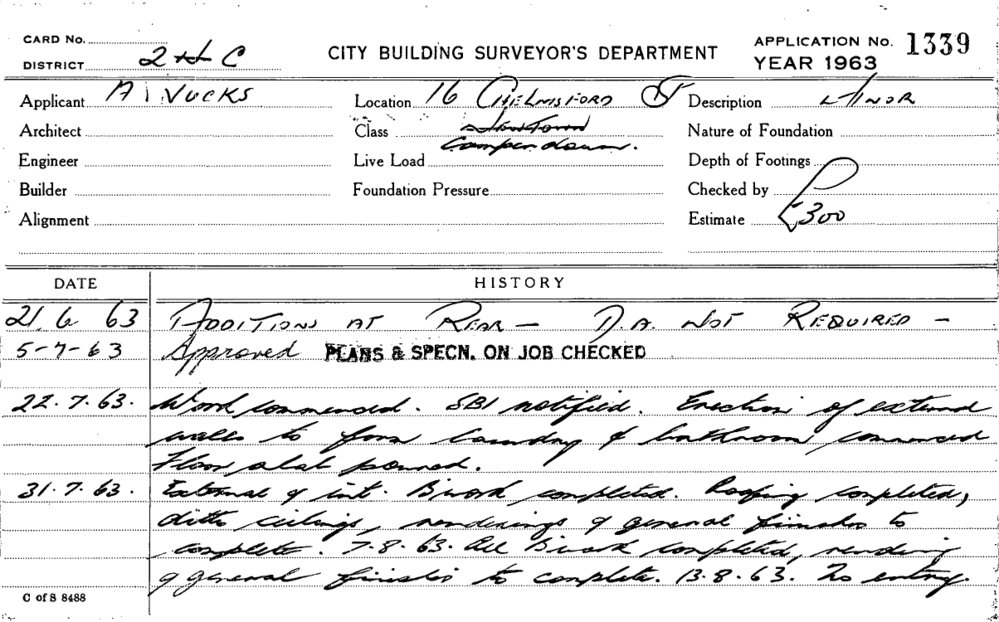 CARD No.
DISTRICT 2nd C
CITY BUILDING SURVEYOR'S DEPARTMENT
APPLICATION No. 1339
YEAR 1963
Applicant A. VUCKS Location 16 CHELMSFORD ST Description MINOR
Architect Class Newtown Nature of Foundation
Camperdown.
Engineer Live Load Depth of Footings
Builder Foundation Pressure Checked by
Alignment Estimate £300
DATE HISTORY
21 6 63 ADDITIONS AT REAR — D.A. NOT REQUIRED —
5-7-63 Approved PLANS & SPECN. ON JOB CHECKED
22.7.63. Work commenced. SBI notified. Erection of external
walls to form laundry & bathroom commenced
Floor slab poured.
31.7.63. External & int. B'work completed. Roofing completed,
ditto ceilings, renderings & general finishes to
complete. 7.8.63. All B'work completed, rendering
& general finishes to complete. 13.8.63. No entry.
C of S 8488